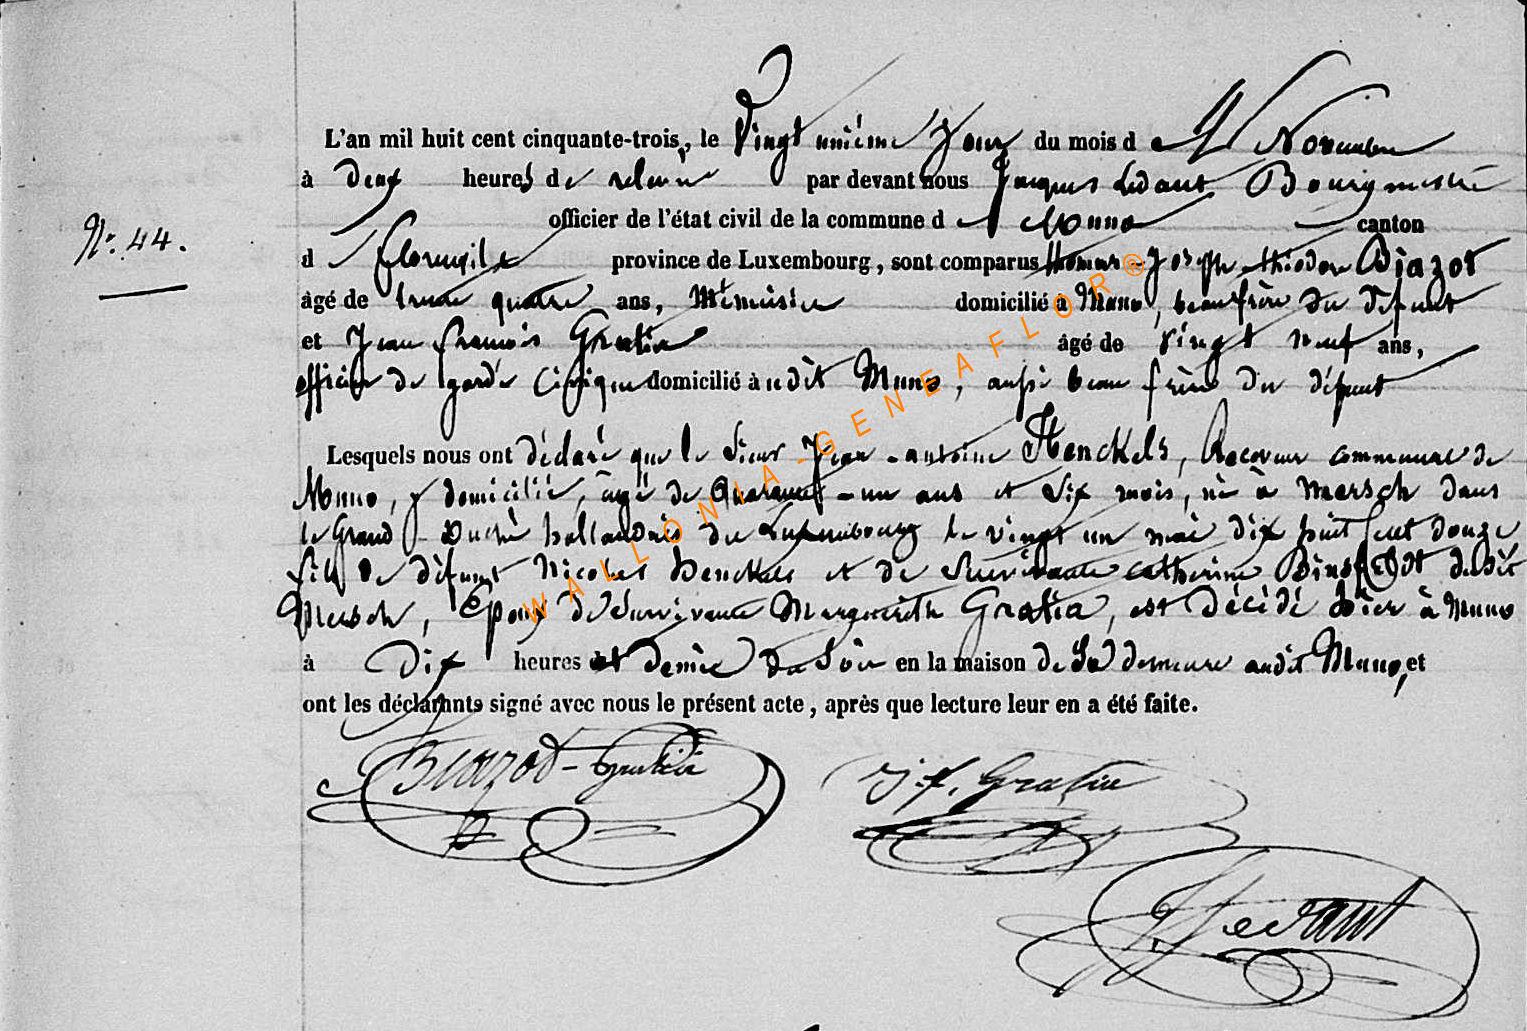 L'an mil huit cent cinquante-trois, le Vingt unième Jour du mois d e Novembre
à deux heures de relevée par devant nous Jacques Ledant Bourgmestre
Nº 44. officier de l'état civil de la commune d e Muno canton
d e Florenville province de Luxembourg, sont comparus Joseph théodore Biazot
âgé de trente quatre ans, domicilié à Muno, beau frère du défunt
et Jean françois Gratia âgé de vingt neuf ans,
officier de garde Civique domicilié à udit Muno, aussi beau frère du défunt
Lesquels nous ont déclaré que le Sieur Jean-antoine Henckels, Receveur communal de
Muno, y domicilié, âgé de Quarante-un ans et Six mois, né à Mersch dans
le Grand-Duché hollandais du Luxembourg le vingt un mai dix huit cent douze
fils de défunt Nicolas Henckels et de Survivante catherine dudit
Mersch, Epoux de Survivante Marguerite Gratia, est décédé hier à Muno
à Dix heures et demie du Soir en la maison de Sa demeure audit Muno, et
ont les déclarants signé avec nous le présent acte, après que lecture leur en a été faite.
Biazot-Gratia J. f. Gratia
J Ledant
WALLONIA-GENEAFLOR®